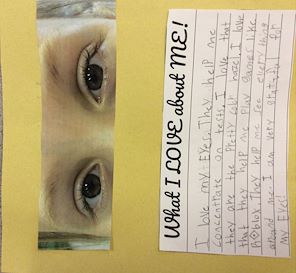 What I LOVE about ME!
I love my Eyes. They help me
concentrate on tests. I love that
they are the pretty colr hazel. I love
that they help me play games like
Roblox. They help me see everything
around me. I am very grateful for
my Eyes!